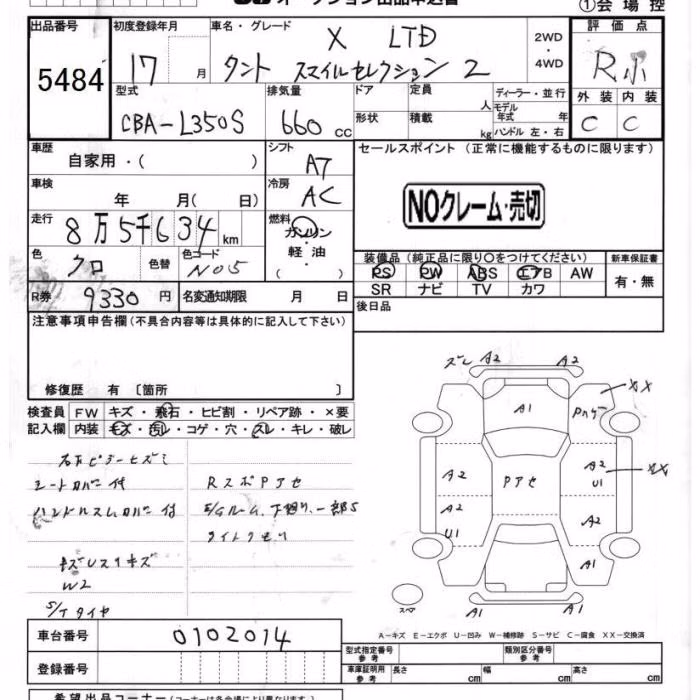 オークション出品申込書
①会場控
出品番号 初度登録年月 車名・グレード 評価点
5484 17 月 X LTD 2WD・4WD R
タント スマイルセレクション2
型式 排気量 ドア 定員 人 ディーラー・並行 外装 内装
CBA-L350S 660 cc 形状 積載 kg モデル年式 年 ハンドル 左・右 C C
車歴 自家用・( ) シフト A7 セールスポイント (正常に機能するものに限ります)
車検 年 月( 日) 冷房 AC
NOクレーム・売切
走行 8万5千634 km 燃料 ガソリン・軽油・( )
色 クロ 色替 色コード N05
装備品(純正品に限り○をつけてください) 新車保証書
PS PW ABS エアB AW 有・無
SR ナビ TV カワ
R券 9330 円 名変通知期限 月 日 後日品
注意事項申告欄(不具合内容等は具体的に記入して下さい)
修復歴 有 〔箇所 〕
検査員 FW キズ・飛石・ヒビ割・リペア跡・×要
記入欄 内装 キズ・汚レ・コゲ・穴・スレ・キレ・破レ
シートカバー付 RスポPアセ
ハンドルスレカバー付 E/Gルーム、下廻り、一部S
ライトクモリ
W2
S/Tタイヤ
ズレ A2 A2
XX
A1
A2 Pアセ A2 U1 XX
A2 U1 A2
A1
スペア A1 A1
A-キズ E-エクボ U-凹み W-補修跡 S-サビ C-腐食 XX-交換済
車台番号 0102014
型式指定番号 参考 類別区分番号 参考
登録番号 車庫証明用 参考 長さ cm 幅 cm 高さ cm
希望出品コーナー